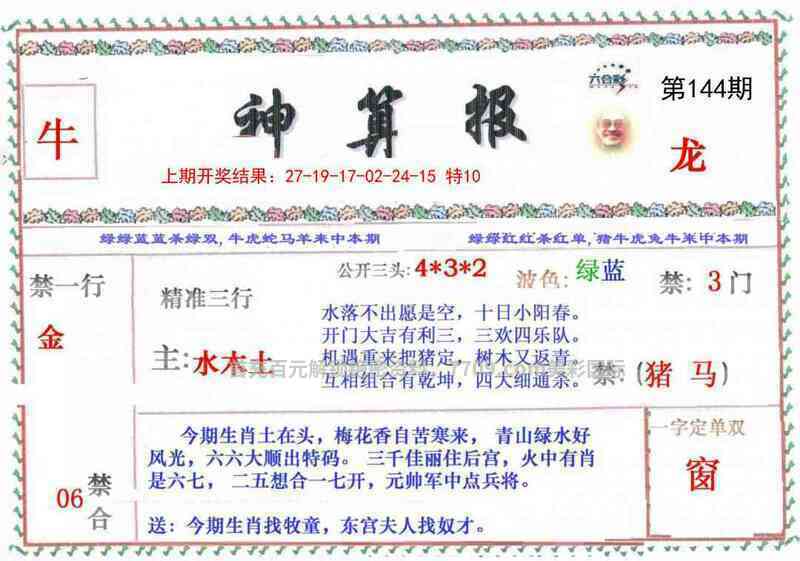 六合彩
第144期
牛
神算报
龙
上期开奖结果：27-19-17-02-24-15 特10
绿绿蓝蓝杀绿双，牛虎蛇马羊来中本期
绿绿红红杀红单，猪牛虎兔牛来中本期
禁一行
金
精准三行
主：水木土
公开三头：4*3*2
波色：绿蓝
禁：3门
水落不出愿是空，十日小阳春。
开门大吉有利三，三欢四乐队。
机遇重来把猪定，树木又返青。
互相组合有乾坤，四大细通杀。
禁：（猪 马）
06
禁合
今期生肖土在头，梅花香自苦寒来， 青山绿水好
风光，六六大顺出特码。 三千佳丽住后宫，火中有肖
是六七， 二五想合一七开，元帅军中点兵将。
送：今期生肖找牧童，东宫夫人找奴才。
一字定单双
窗